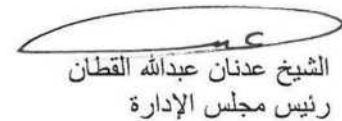 الشيخ عدنان عبدالله القطان
رئيس مجلس الإدارة